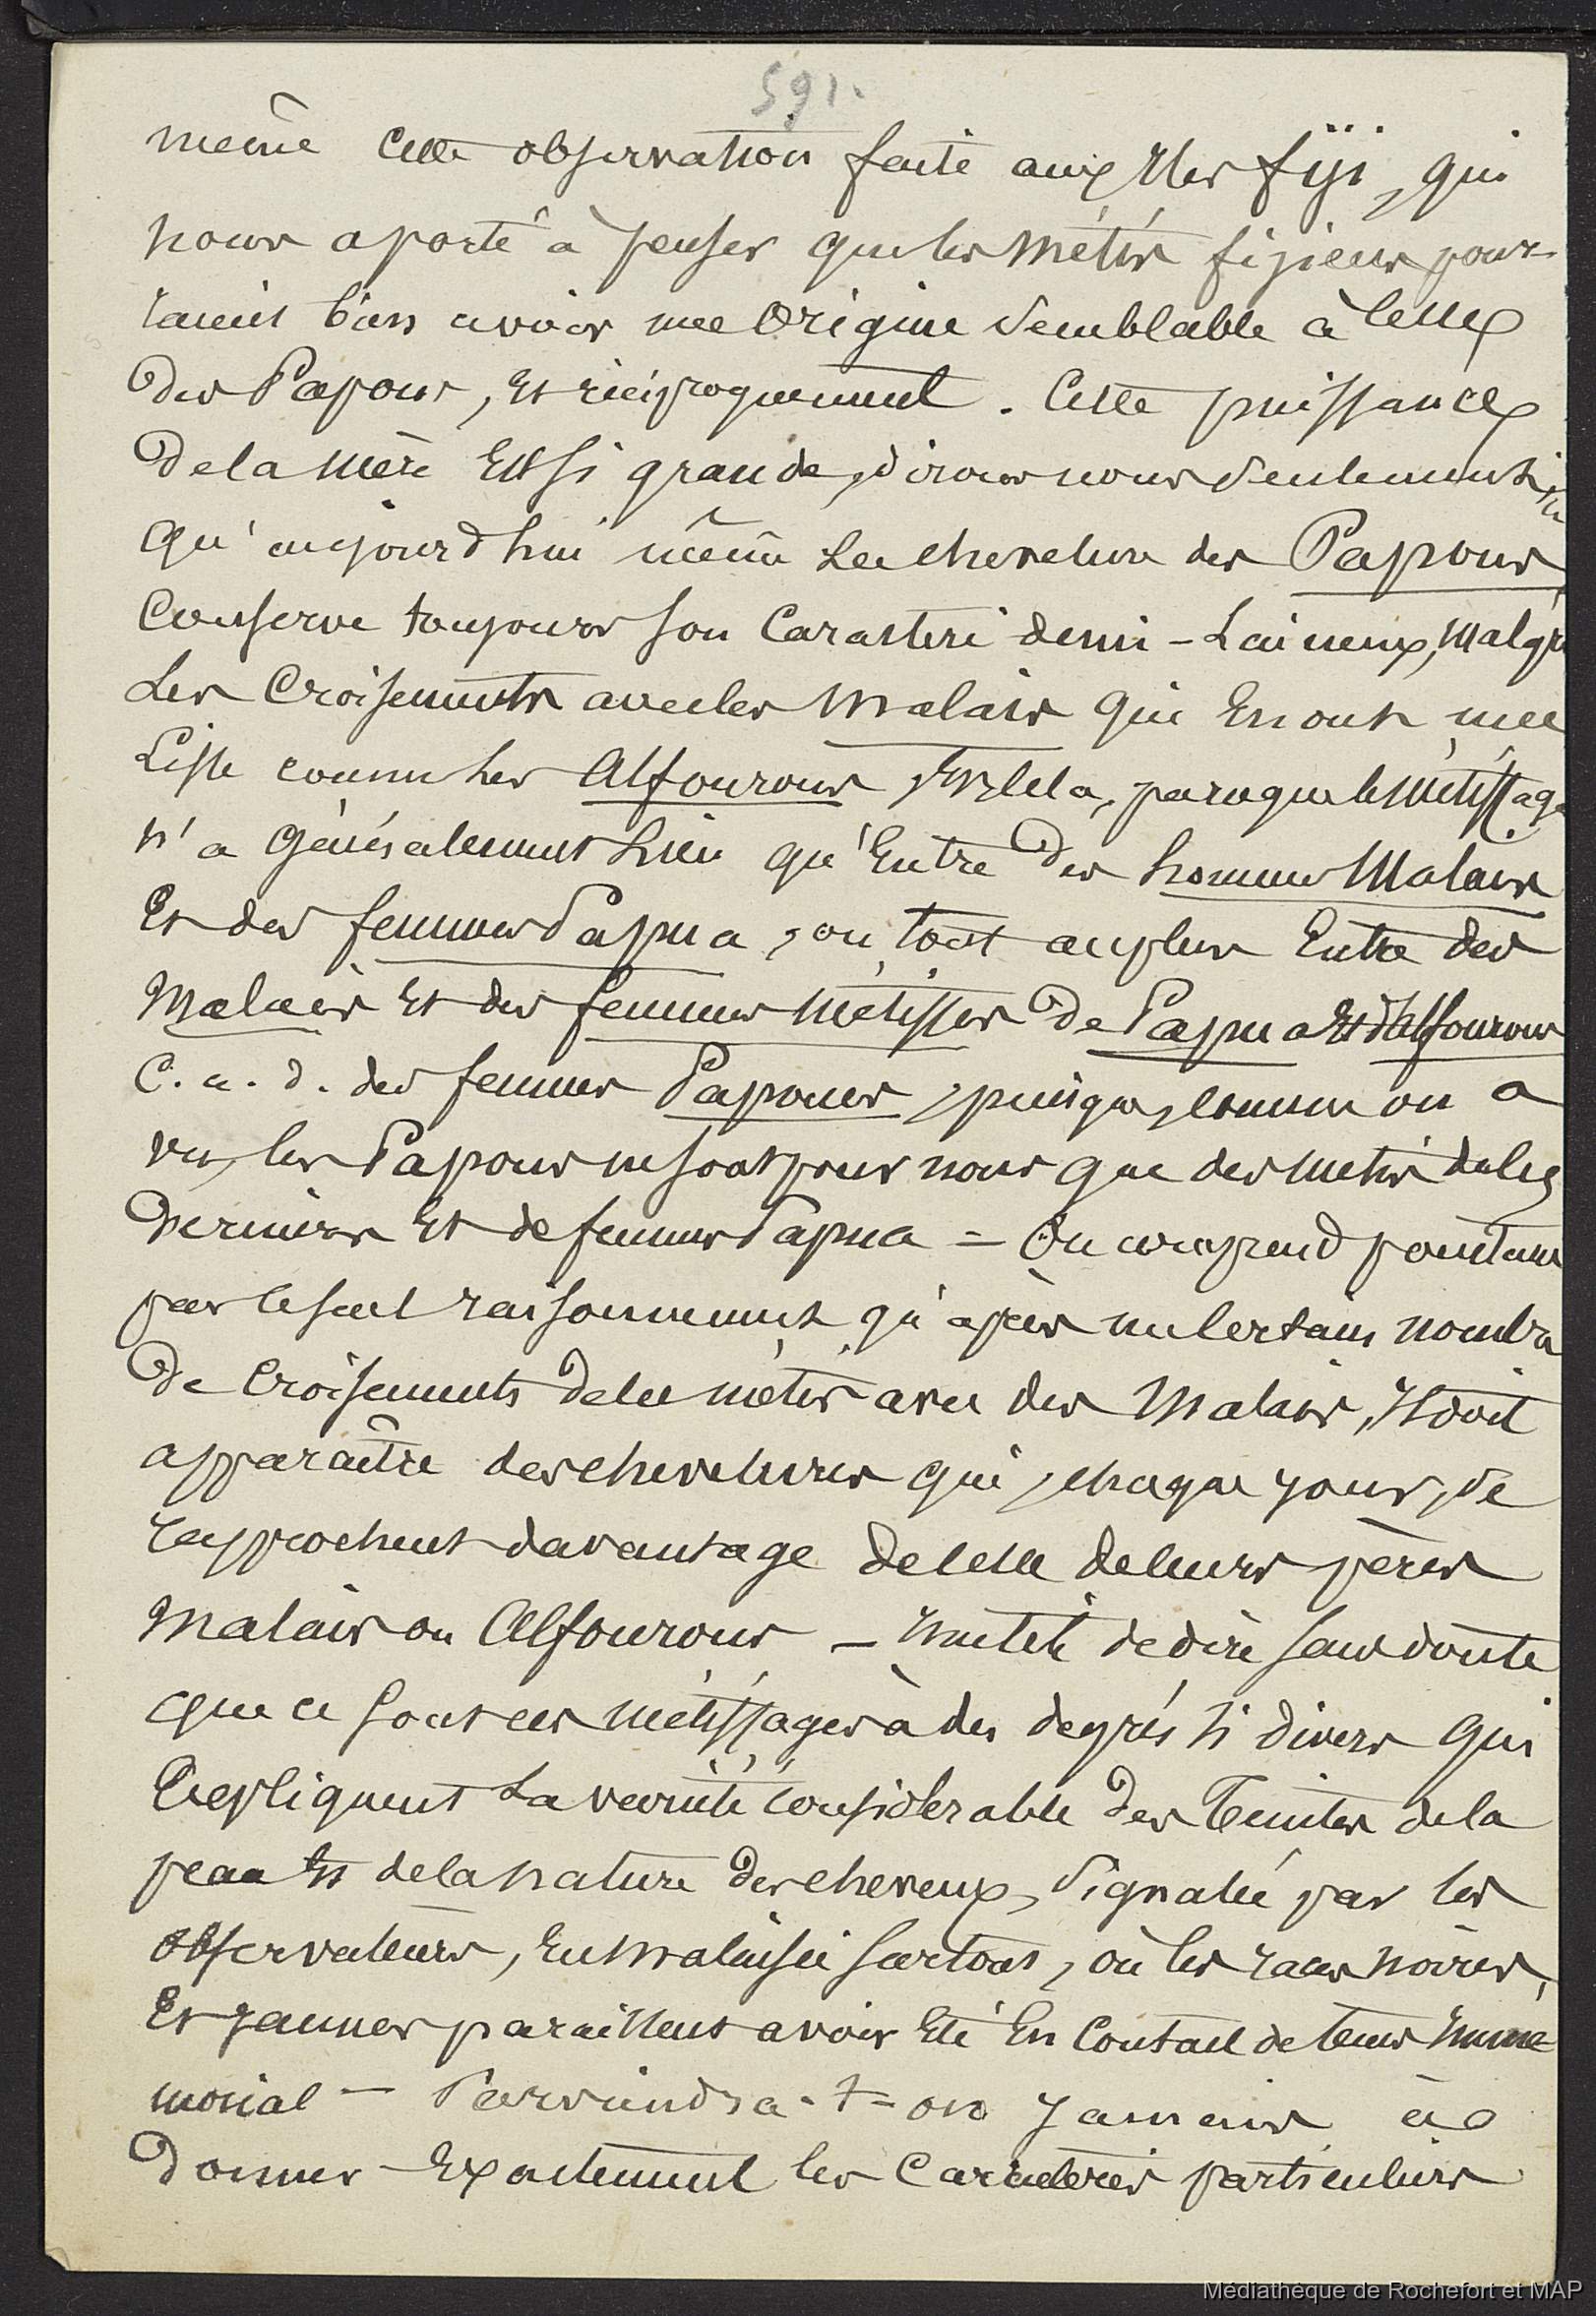 591.
même cette observation faite aux Iles fiji, qui
nous a porté à penser que les métis fijiens pour-
raient bien avoir une Origine semblable à celle
des Papous, et réciproquement. Cette puissance
de la mère est si grande, dirons nous seulement ici
qu'aujourd'hui même La chevelure des Papous
Conserve toujours son Caractère demi-Laineux, malgré
Les Croisements avec les malais qui En ont une
Lisse comme les Alfourous, Et cela, parceque le métissage
n'a Généralement Lieu qu'Entre des hommes Malais
Et des femmes Papua, ou tout au plus Entre des
Malais Et des femmes métisses de Papua Et d'Alfourous
C. a. d. des femmes Papoues, puisque, comme on a
vu, les Papous ne sont pour nous que des métis de ces
Derniers Et de femmes Papua = On comprend pourtant
par le seul raisonnement qu'après un certain nombre
De Croisements de ces métis avec des Malais, Il doit
apparaître des chevelures qui, chaque jour, se
rapprochent davantage de celle de leurs pères
Malais ou Alfourous – Inutile de dire sans doute
que ce sont ces métissages à des degrés si divers qui
Expliquent La variété considérable des Teintes de la
peau Et de la nature des cheveux, signalée par les
observateurs, En Malaisie surtout, où les races noires,
Et jaunes paraissent avoir Eté En Contact de tems Immé-
morial – Parviendra-t-on jamais à
Donner Exactement les Caractères particuliers
Médiathèque de Rochefort et MAP